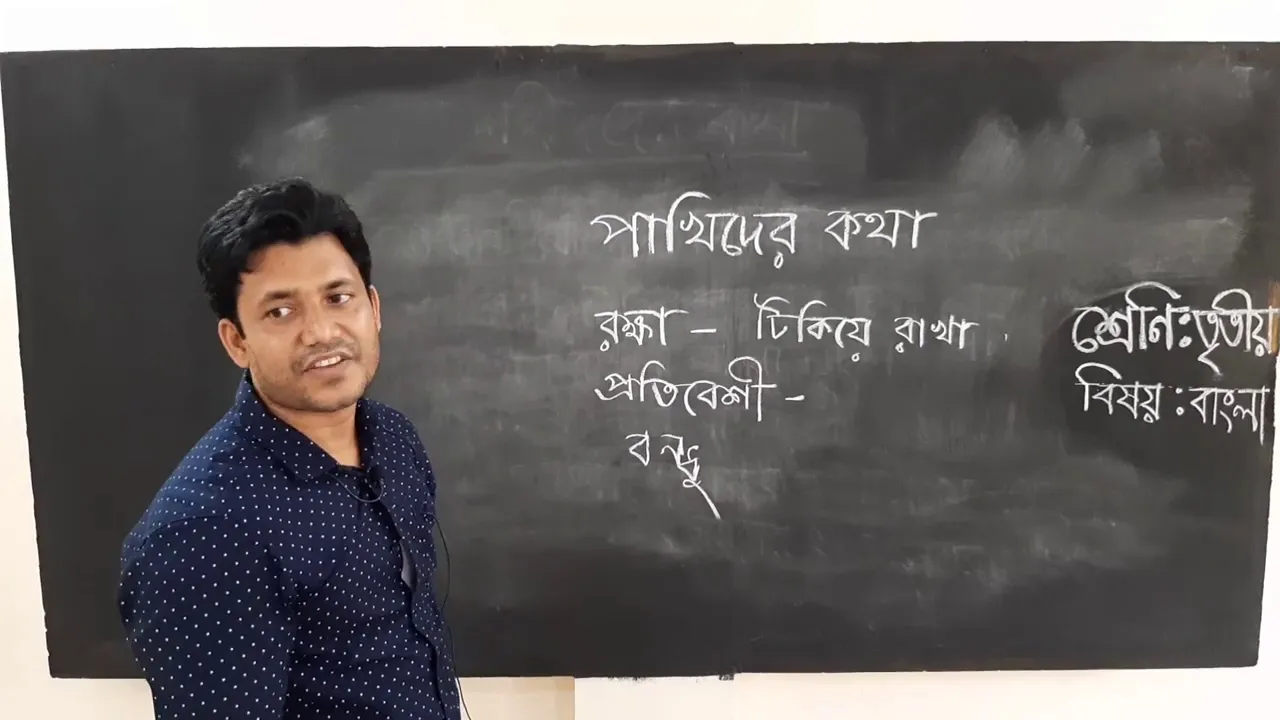 পাখিদের কথা
রক্ষা - টিকিয়ে রাখা
প্রতিবেশী -
বন্ধু
শ্রেণি: তৃতীয়
বিষয় : বাংলা